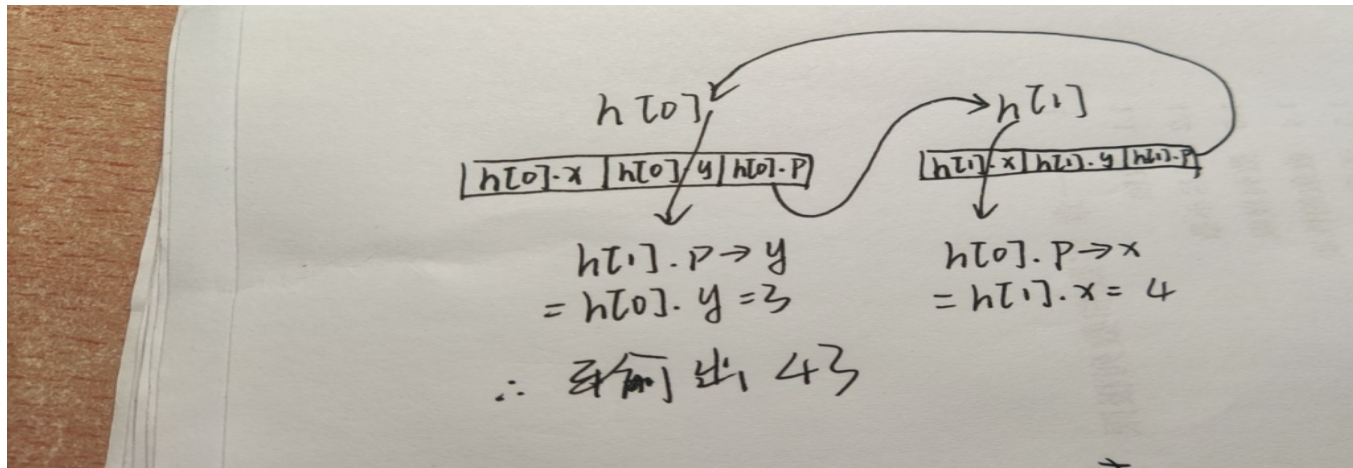 h[0] h[1]
h[0].x h[0].y h[0].p h[1].x h[1].y h[1].p
h[1].p→y h[0].p→x
= h[0].y = 3 = h[1].x = 4
∴ 输出 43